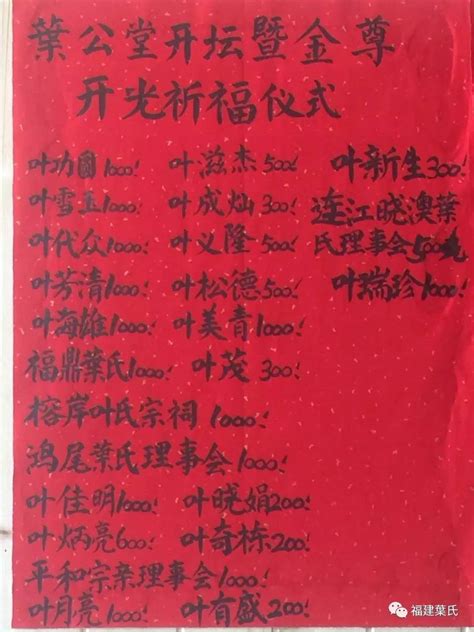 葉公堂开坛暨金尊
开光祈福仪式
叶功圆1000! 叶滋杰500! 叶新生300!
叶雪玉1000! 叶成灿300! 连江晓澳葉
叶代众1000! 叶义隆500! 氏理事会500元
叶芳清1000! 叶松德500! 叶瑞珍1000!
叶海雄1000! 叶美青1000!
福鼎葉氏1000! 叶茂300!
榕岸叶氏宗祠1000!
鸿尾葉氏理事会1000!
叶佳明1000! 叶晓娟200!
叶炳亮600! 叶奇栋200!
平和宗亲理事会1000!
叶月亮1000! 叶有盛200!
福建葉氏